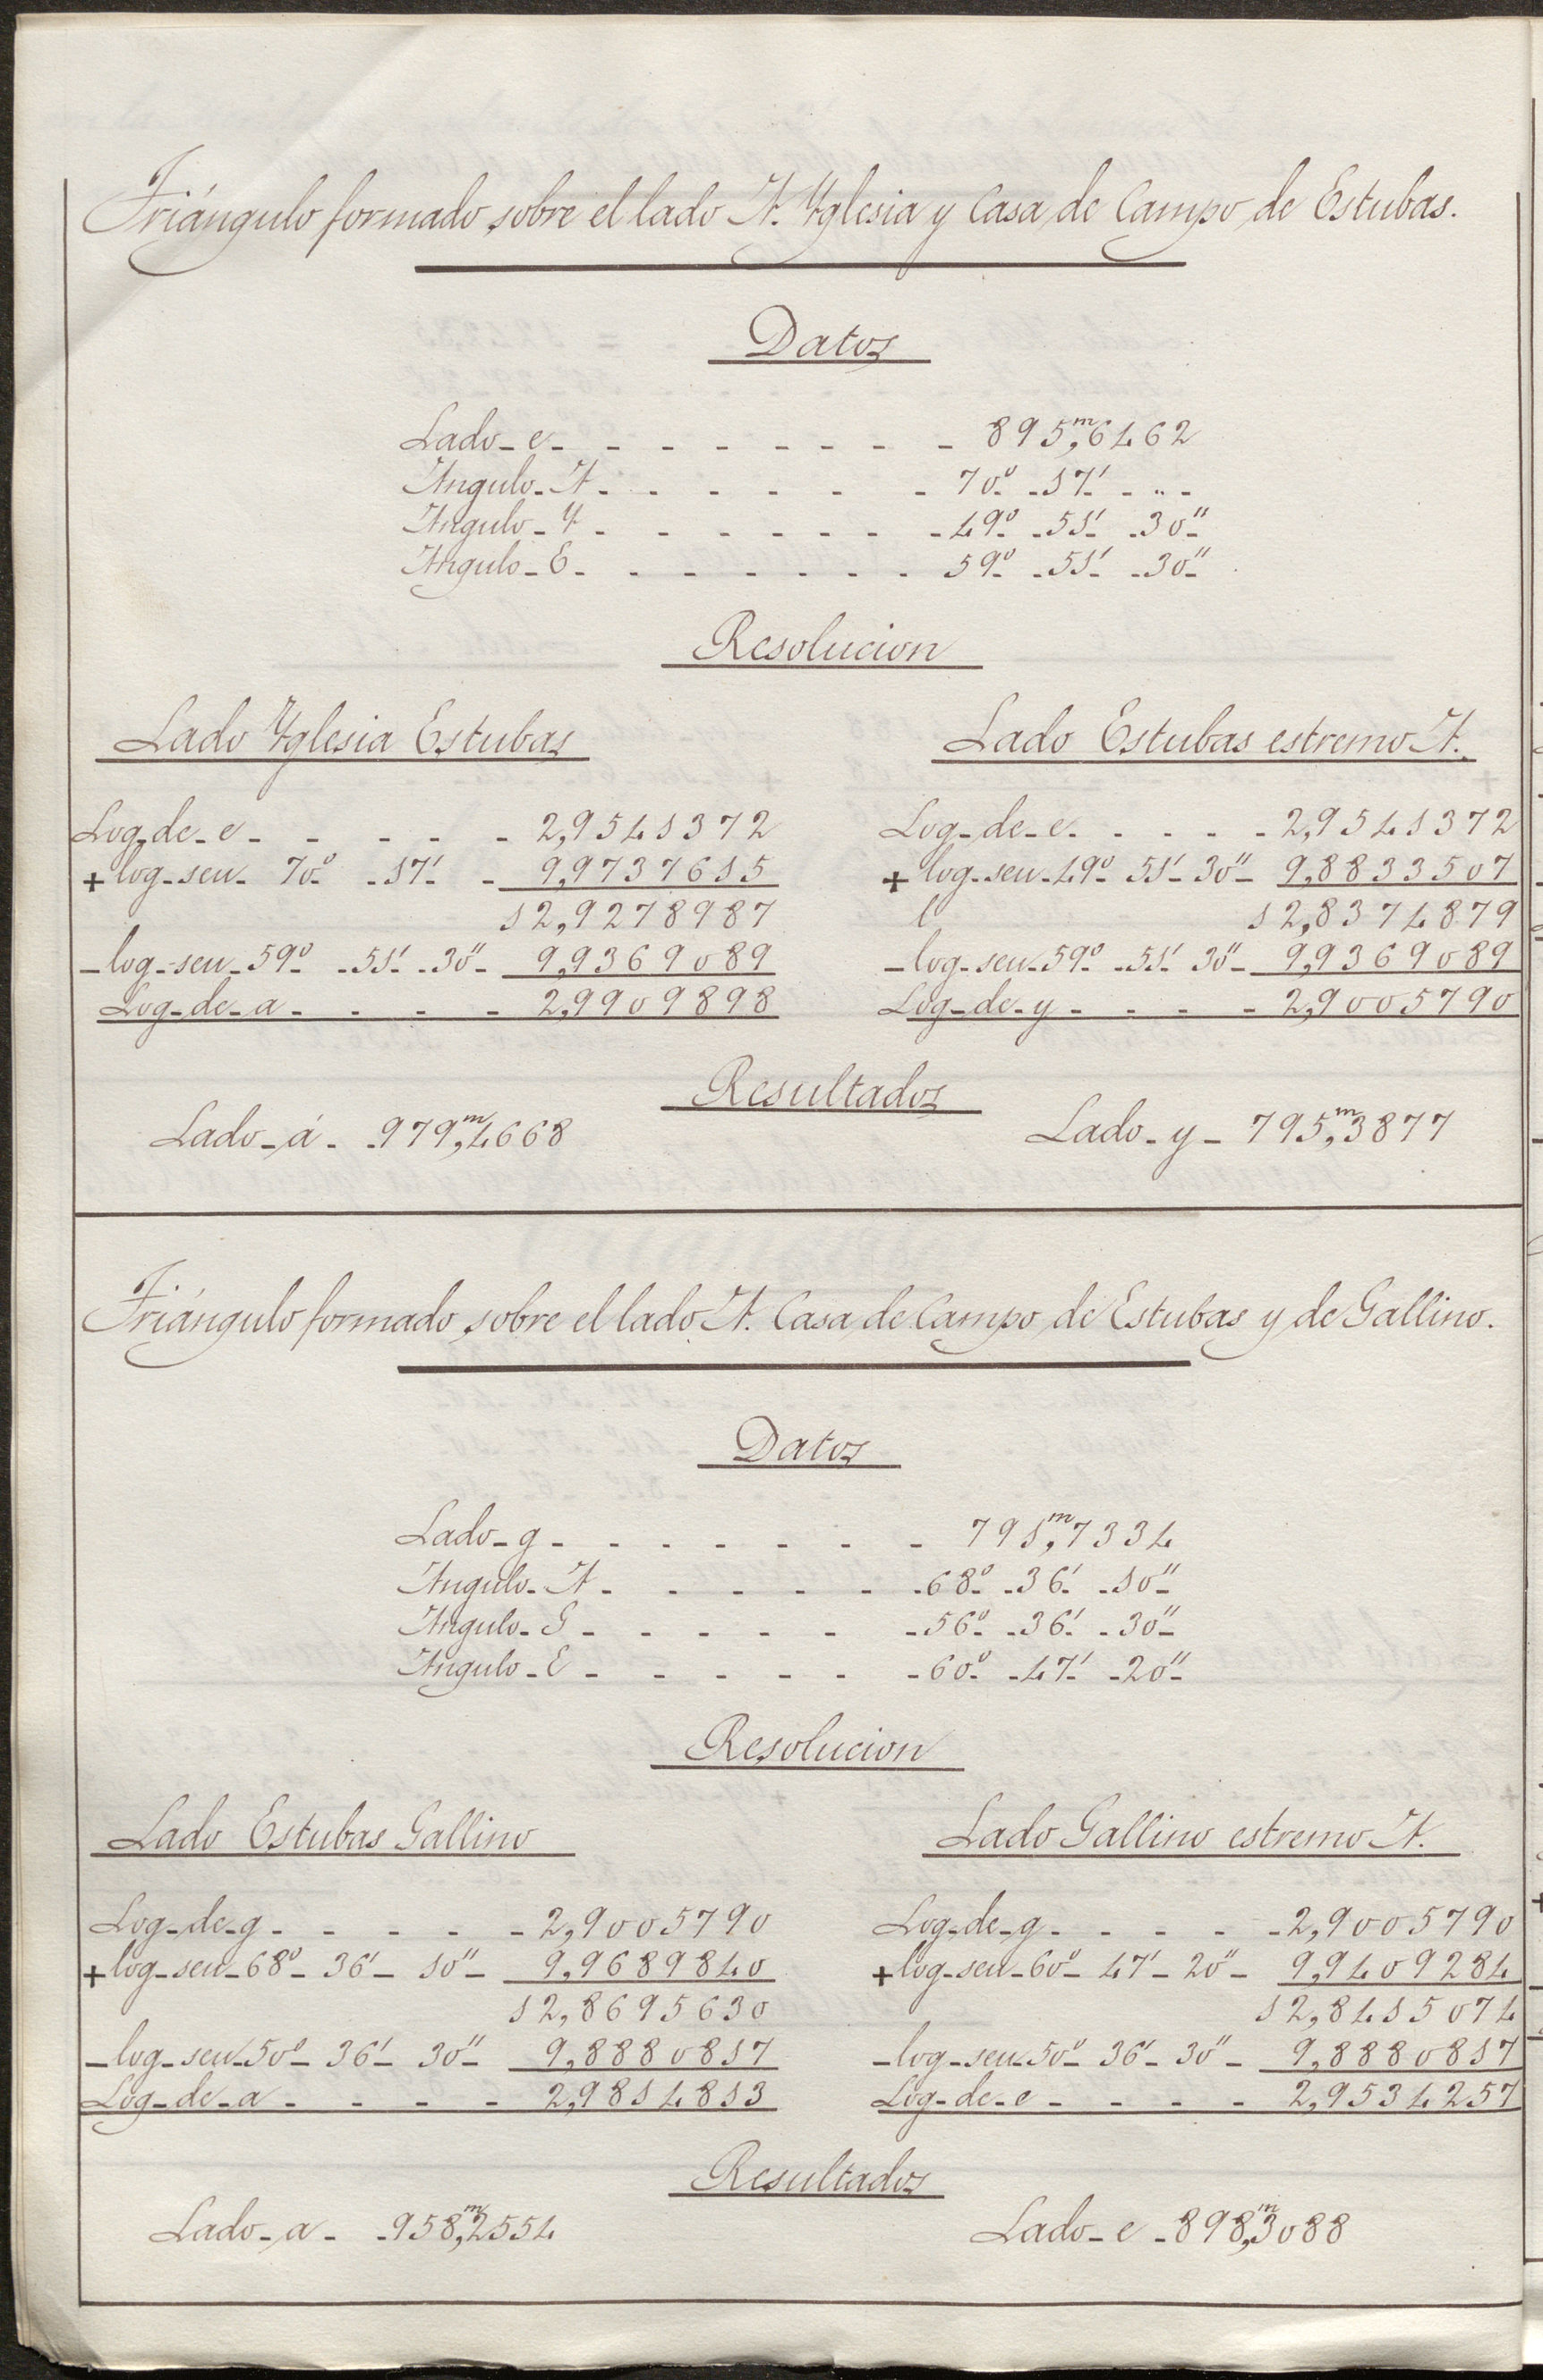 Triángulo formado sobre el lado A. Yglesia y Casa de Campo de Estubas.
Datos
Lado - e - - - - - - - - 895,ᵐ6462
Angulo - A - - - - - - 70° - 17' - " -
Angulo - Y - - - - - - - 49° - 51' - 30"
Angulo - E - - - - - - - 59° - 51' - 30"
Resolucion
Lado Yglesia Estubas
Log - de - e - - - - - 2,9541372
+ log - sen - 70° - 17' - 9,9737615
12,9278987
- log - sen - 59° - 51' - 30" - 9,9369089
Log - de - a - - - - 2,9909898
Lado Estubas estremo A.
Log - de - e - - - - 2,9541372
+ log - sen - 49° 51' 30" - 9,8833507
12,8374879
- log - sen - 59° - 51' 30" - 9,9369089
Log - de - y - - - - 2,9005790
Resultados
Lado - á - 979,ᵐ4668
Lado - y - 795,ᵐ3877
Triángulo formado sobre el lado A. Casa de Campo de Estubas y de Gallino.
Datos
Lado - g - - - - - - - 791,ᵐ7334
Angulo - A - - - - - - 68° - 36' - 10"
Angulo - G - - - - - - 56° - 36' - 30"
Angulo - E - - - - - - 60° - 47' - 20"
Resolucion
Lado Estubas Gallino
Log - de - g - - - - - 2,9005790
+ log - sen - 68° - 36' - 10" - 9,9689840
12,8695630
- log - sen - 50° - 36' - 30" - 9,8880817
Log - de - a - - - - 2,9814813
Lado Gallino estremo A.
Log - de - g - - - - 2,9005790
+ log - sen - 60° - 47' - 20" - 9,9409284
12,8415074
- log - sen - 50° - 36' - 30" - 9,8880817
Log - de - e - - - - 2,9534257
Resultados
Lado - a - 958,ᵐ2554
Lado - e - 898,ᵐ3088